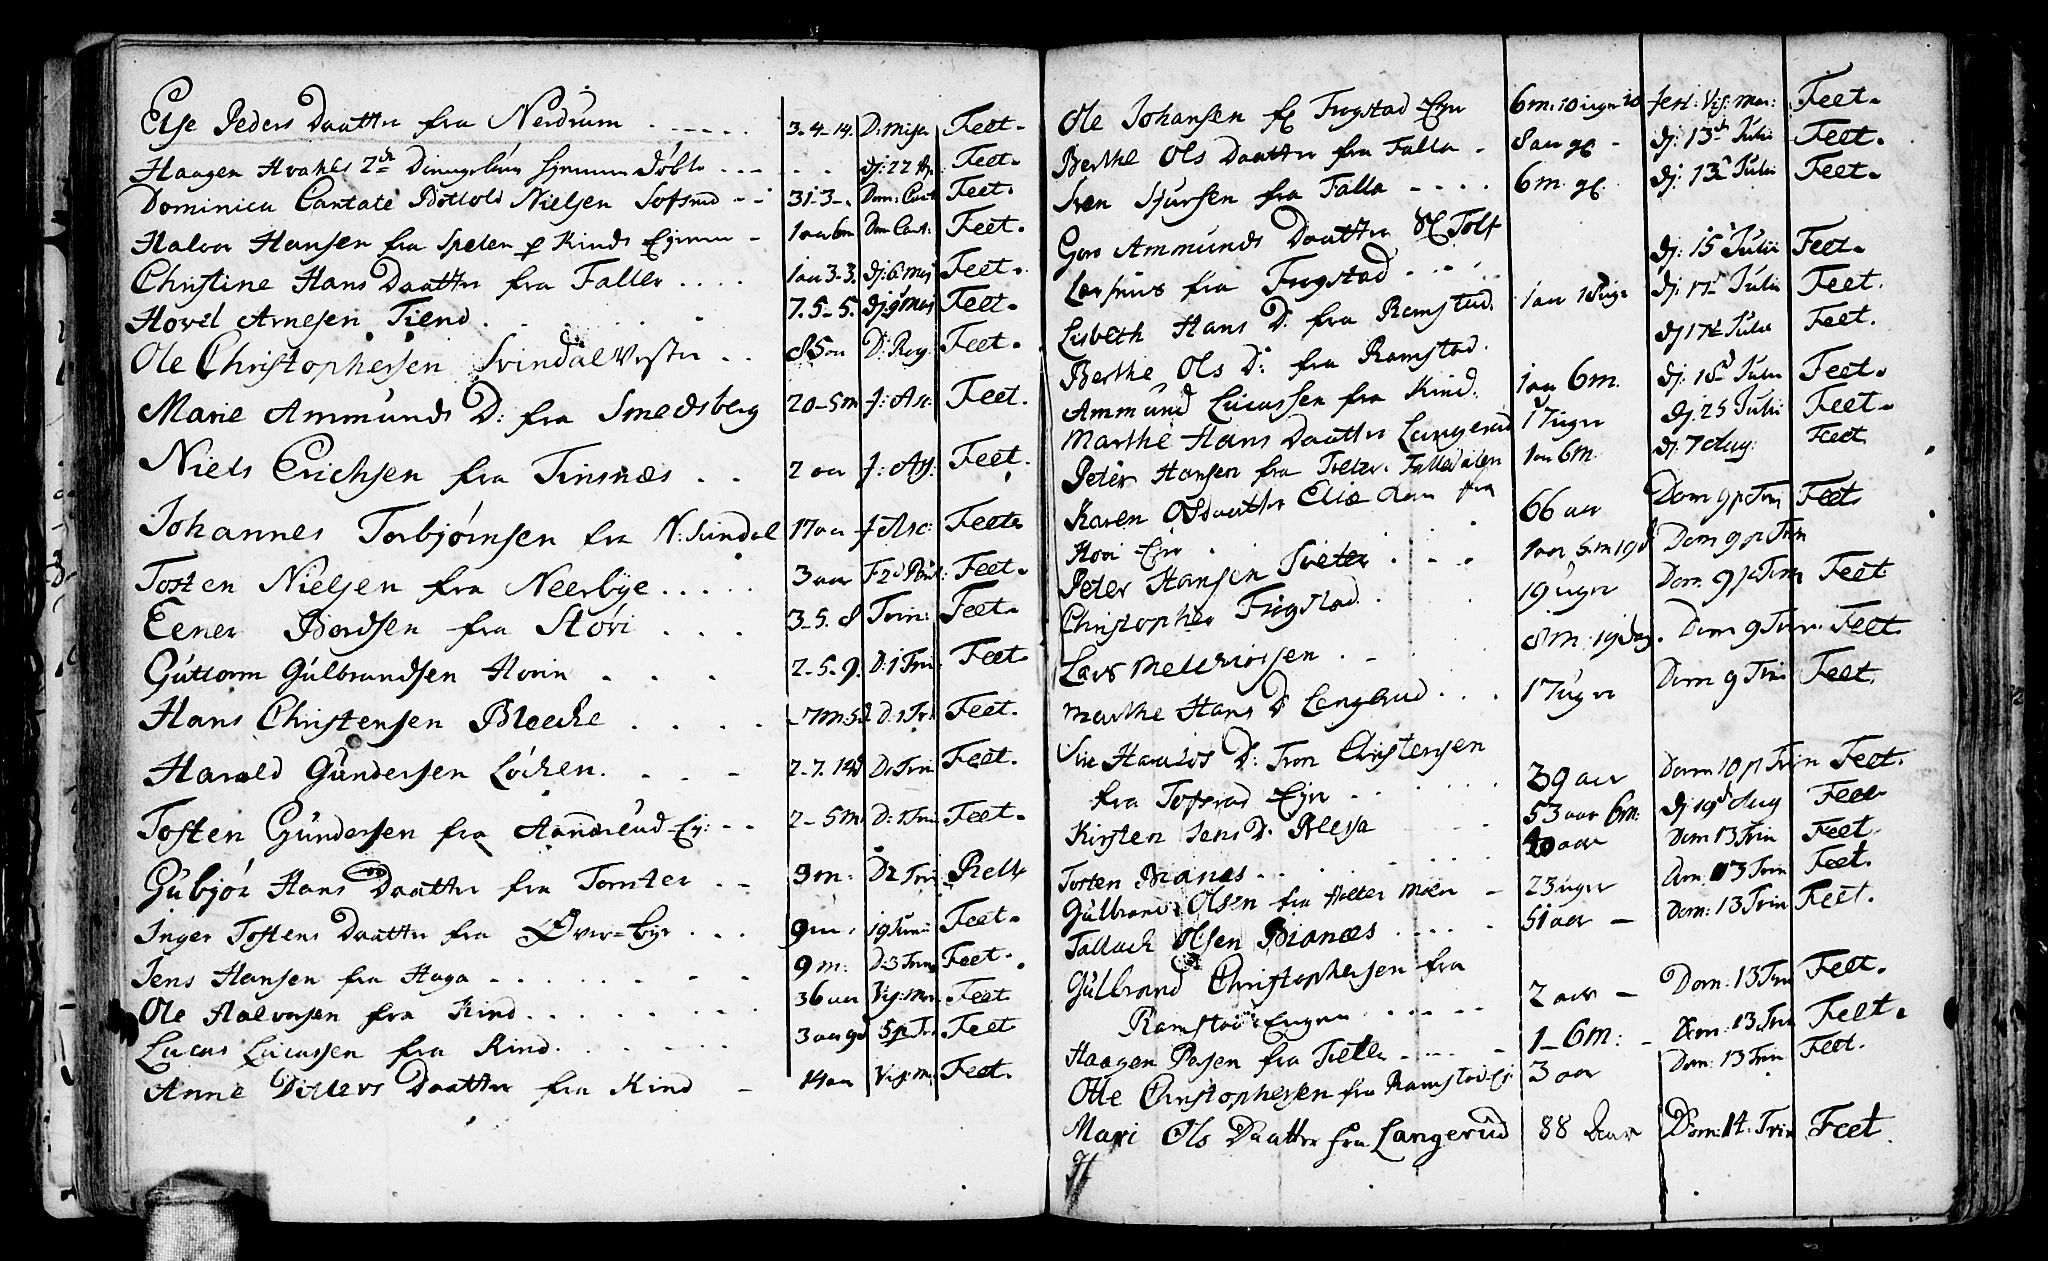 Else Peders Daatter fra Nerdrum 3.4.14. D: Mise Feet.
Haagen dj: 22 Feet.
Dominica Cantate Nielsen 31-3- Dom: Cant Feet.
Halvor Hansen fra Spelen Kinds 1 aar 6m Dom Cant: Feet.
Christine Hans Daatter fra Faller 1 aar 3.3. dj: 6 maj Feet.
Hovel Arnesen Tiend 7.5-5. dj: 9 maj Feet.
Ole Christophersen Svindal Vester 85 aar D: Rog. Feet.
Marie Ammunds D: fra Smedsberg 20-5m f: Asc: Feet.
Niels Erichsen fra Tinsnæs 2 aar f: As: Feet.
Johannes Torbjørnsen fra N: Svindal 17 aar f Asc: Feet
Tosten Nielsen fra Neerbye 3 aar F 2 d Feet.
Eener Bordsen fra Støvi 3-5.8 Trin: Feet.
Guttorm Gulbrandsen Hovin 2-5.9. D: 1 Trin Feet.
Hans Christensen Bloecke -7m5d D: 1 Tri Feet.
Harald Gundersen Løcken. 2-7.14d D: Trin Feet.
Tosten Gundersen fra Aanderud Ej: 2-5m D: 1 Trin Feet.
Gubjør Hans Daatter fra Tomter 9m: D 2 Trin
Inger Tostens Daatter fra Øver-bye 9m. 19 Junii Feet.
Jens Hansen fra Haga 9m: D: 3 Trin Feet.
Ole Halvorsen fra Kind 36 aar Vis: Mar Feet
Lucas Lucassen fra Kind. 3 aar 9d 5 p Tri Feet
Anne Ditlevs Daatter fra Kind 14 aar Vis: M: Feet.
Ole Johansen fra Frogstad Ejer 6m: 10 uger fest: Vis: Mar: Feet.
Berthe Ols Daatter fra Falla 8 aar dj: 13 Julii Feet.
Sven Sjursen fra Falla 6m dj: 13 Julii Feet.
Goro Ammunds Daatter
fra Frogstad dj: 15 Julii Feet.
Lisbeth Hans D: fra Ramstad. 1 aar dj: 17 Julii Feet.
Berthe Ols D: fra Ramstad. dj 17 Julii Feet.
Ammund Lucassen fra Kind. 1 aar 6m. dj: 18 Julii Feet.
Marthe Hans Daatter Langerud 17 uger dj 25 Julii Feet.
Peter Hansen fra Tveter 1 aar 6m dj. 7 Aug: Feet
Karen Ols Daatter fra
Hovi Ejer 66 aar Dom 9 p Trin Feet
Peter Hansen Tveter 1 aar 5m 19d Dom 9 p Trin
Christopher Frogstad 19 uger Dom 9 p Trin Feet
Lars Melchiorsen 8m: 19 dag. Dom 9 Trin. Feet
Marthe Hans D: Langerud 17 uger Dom 9 Trin Feet
Siri Haralds D: Tron Christensen
fra Tofsrud Ejer 39 aar Dom 10 p Trin Feet.
Kirsten Jens D: 53 aar 6m: dj 19 Aug Feet
Torsten Bianes 40 aar Dom 13 Trin Feet.
Gulbrand Olsen fra Holter Moen 23 uger Dom: 13 Trin Feet.
Tallack Olsen Bianæs 51 aar Dom: 13 Trin Feet.
Gulbrand Christophersen fra
Ramstad Engen 2 aar Dom: 13 Trin Feet.
Haagen fra Tveter 1-6m: Dom: 13 Trin Feet.
Otte Christophersen fra Ramstad Ej 3 aar Dom: 13 Trin Feet.
Mari Ols Daatter fra Langerud 88 aar Dom: 14: Trin Feet